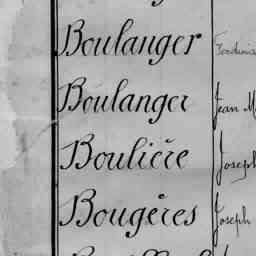 Boulanger Ferdina
Boulanger Jean M
Boulière Joseph
Bougères Joseph